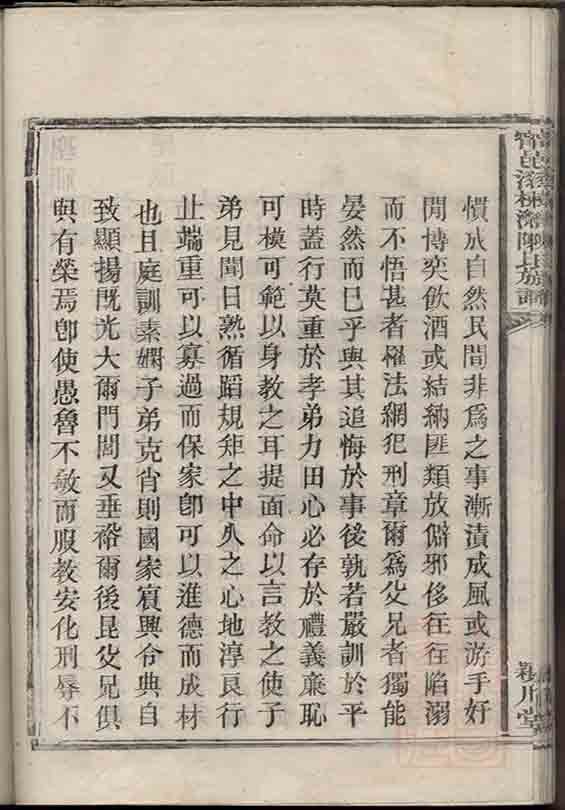 慣成自然民間非爲之事漸漬成風或游手好
閒博奕飲酒或結納匪類放僻邪侈往往陷溺
而不悟甚者罹法網犯刑章爾爲父兄者獨能
晏然而已乎與其追悔於事後孰若嚴訓於平
時蓋行莫重於孝弟力田心必存於禮義廉恥
可模可範以身教之耳提面命以言教之使子
弟見聞日熟循蹈規矩之中久之心地淳良行
止端重可以寡過而保家卽可以進德而成材
也且庭訓素嫻子弟克肖則國家賓興令典自
致顯揚旣光大爾門閭又垂裕爾後昆父兄俱
與有榮焉卽使愚魯不敏而服教安化刑辱不
陳氏族譜
潁川堂